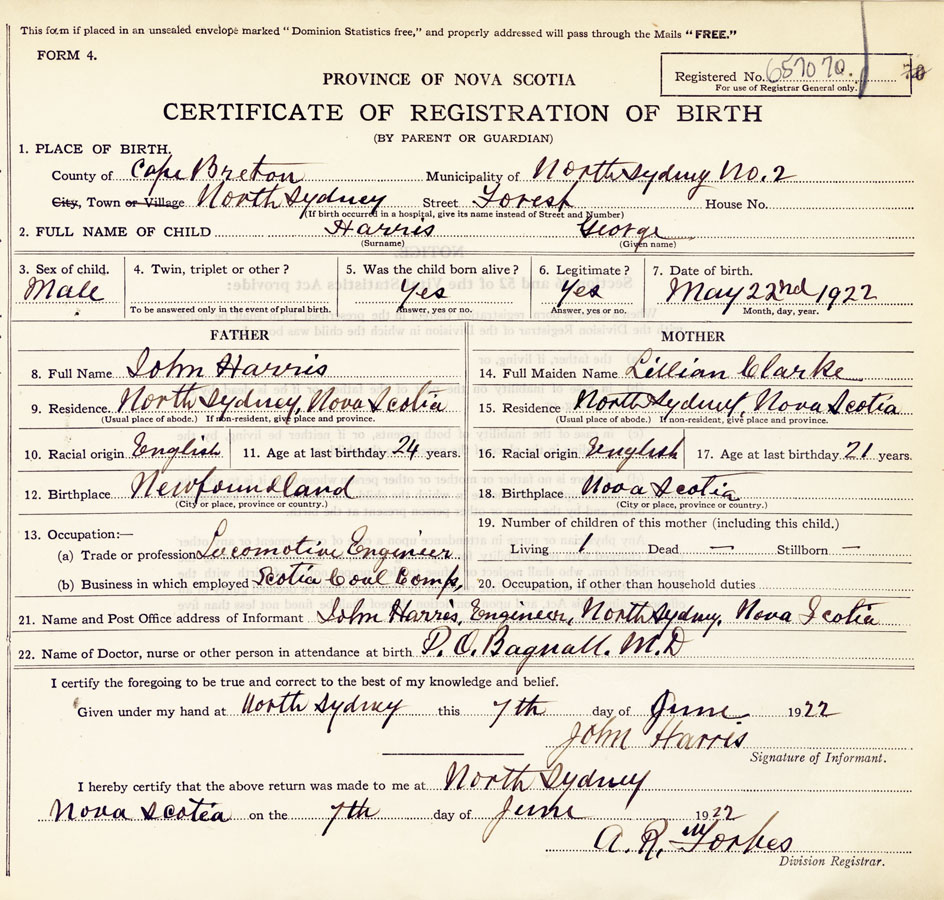 This form if placed in an unsealed envelope marked "Dominion Statistics free," and properly addressed will pass through the Mails "FREE."
FORM 4.
Registered No. 657070. 70
For use of Registrar General only.
PROVINCE OF NOVA SCOTIA
CERTIFICATE OF REGISTRATION OF BIRTH
(BY PARENT OR GUARDIAN)
1. PLACE OF BIRTH.
County of Cape Breton Municipality of North Sydney No. 2
City, Town or Village North Sydney Street Forest House No.
(If birth occurred in a hospital, give its name instead of Street and Number)
2. FULL NAME OF CHILD Harris George
(Surname) (Given name)
3. Sex of child. 4. Twin, triplet or other? 5. Was the child born alive? 6. Legitimate? 7. Date of birth.
Male Yes Yes May 22nd 1922
To be answered only in the event of plural birth. Answer, yes or no. Answer, yes or no. Month, day, year.
FATHER MOTHER
8. Full Name John Harris 14. Full Maiden Name Lillian Clarke
9. Residence. North Sydney, Nova Scotia 15. Residence North Sydney, Nova Scotia
(Usual place of abode.) If non-resident, give place and province. (Usual place of abode.) If non-resident, give place and province.
10. Racial origin English 11. Age at last birthday 24 years. 16. Racial origin English 17. Age at last birthday 21 years.
12. Birthplace Newfoundland 18. Birthplace Nova Scotia
(City or place, province or country.) (City or place, province or country.)
13. Occupation:— 19. Number of children of this mother (including this child.)
(a) Trade or profession Locomotive Engineer Living 1 Dead — Stillborn —
(b) Business in which employed Scotia Coal Comp, 20. Occupation, if other than household duties
21. Name and Post Office address of Informant John Harris, Engineer, North Sydney, Nova Scotia
22. Name of Doctor, nurse or other person in attendance at birth P. O. Bagnall. M.D
I certify the foregoing to be true and correct to the best of my knowledge and belief.
Given under my hand at North Sydney this 7th day of June 1922
John Harris
Signature of Informant.
I hereby certify that the above return was made to me at North Sydney
Nova Scotia on the 7th day of June 1922
A. R. Forbes
Division Registrar.